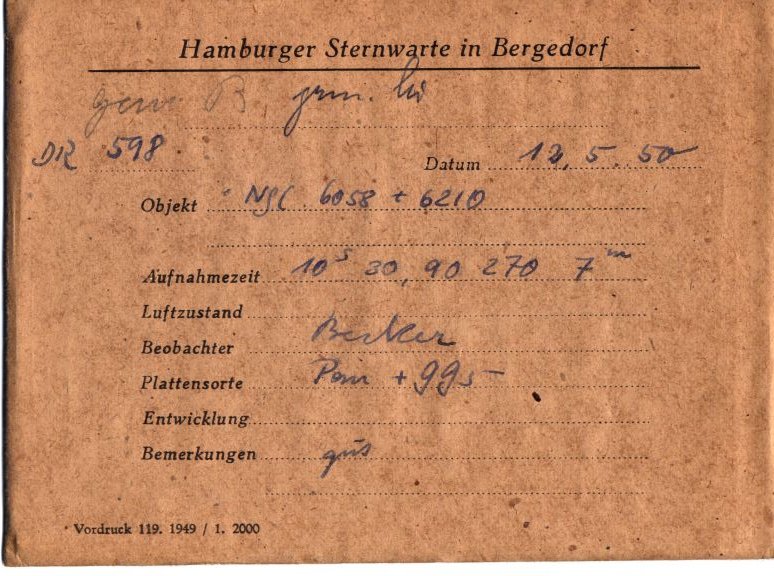 Hamburger Sternwarte in Bergedorf
DR 598
Datum 12. 5. 50
Objekt NGC 6058 + 6210
Aufnahmezeit 10s 30, 90 270 7m
Luftzustand
Beobachter Becker
Plattensorte Pan + 995
Entwicklung
Bemerkungen gut
Vordruck 119. 1949 / 1. 2000